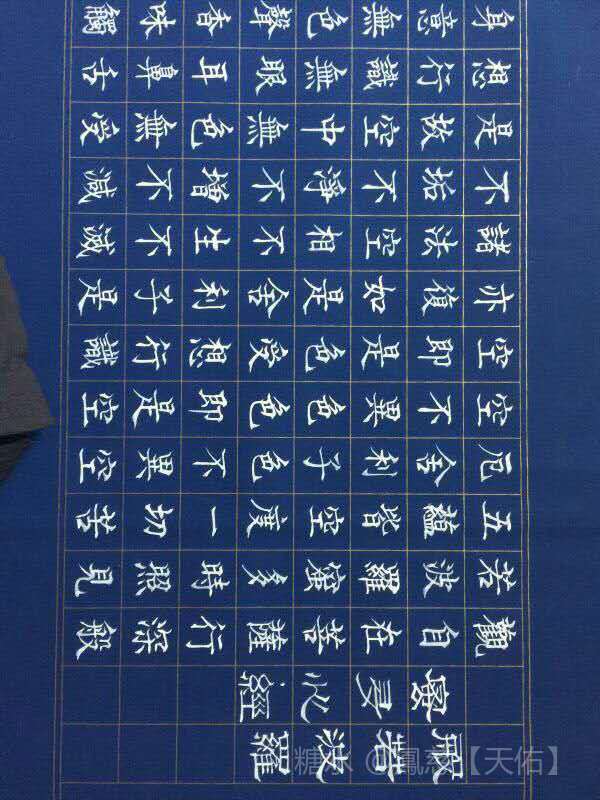 般若波羅
蜜多心經
觀自在菩薩行深般
若波羅蜜多時照見
五蘊皆空度一切苦
厄舍利子色不異空
空不異色色即是空
空即是色受想行識
亦復如是舍利子是
諸法空相不生不滅
不垢不淨不增不減
是故空中無色無受
想行識無眼耳鼻舌
身意無色聲香味觸
【天佑】